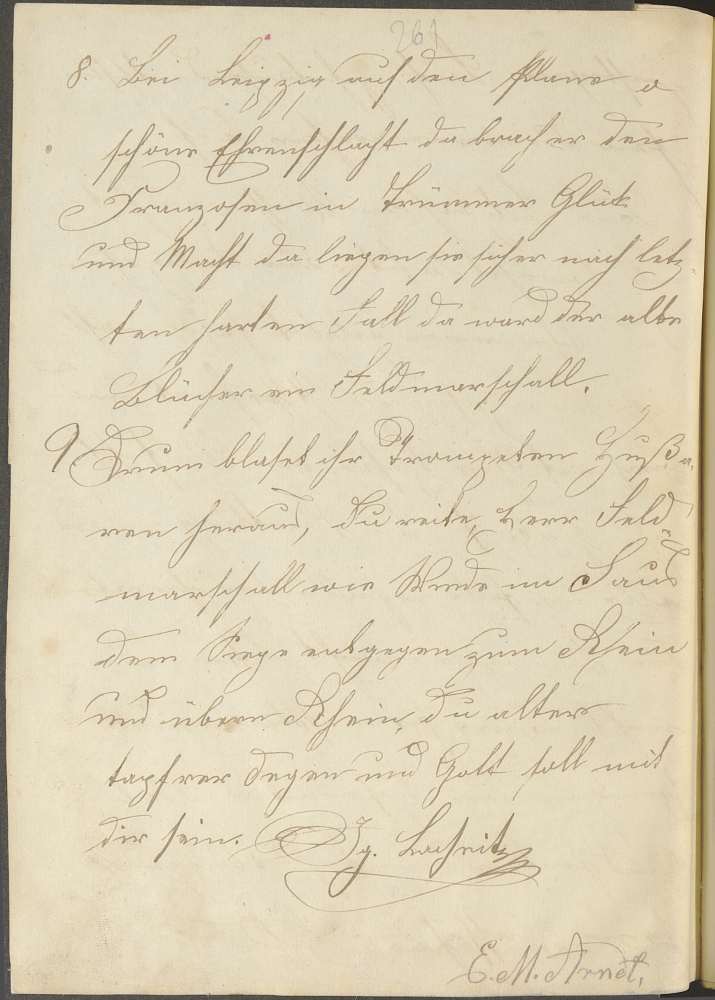 261
8. Bei Leipzig auf den Plane o
schöne Ehrenschlacht da brach er den
Franzosen in Trümmer Glük
und Macht da liegen sie sicher nach letz-
ten harten Fall da ward der alte
Blücher ein Feldmarschall.
9. Drum blaset ihr Trompeten Hußa-
ren heraus, du reite, Herr Feld-
marschall wie Winde im Saus
dem Siege entgegen zum Rhein
und übern Rhein, du alter
tapfrer Degen und Gott soll mit
dir sein. Ig.
E. M. Arndt,